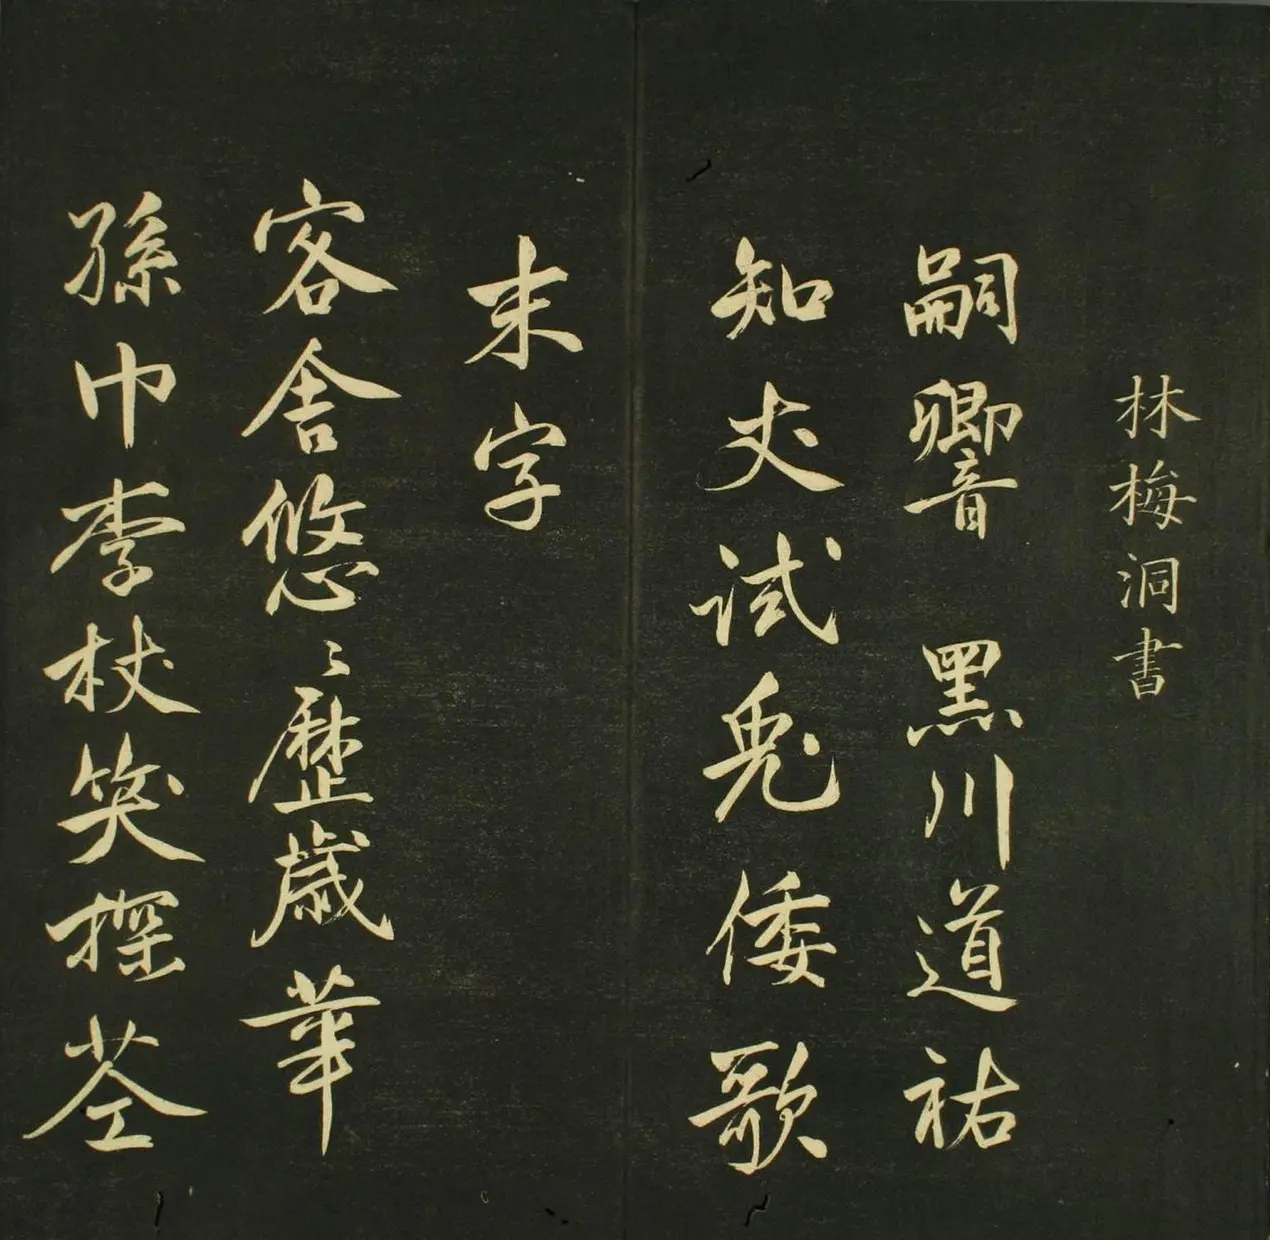 林梅洞書
嗣響 黑川道祐
知丈試兎倭歌
末字
客舍悠〻歷歲華
孫巾李杖笑探荃